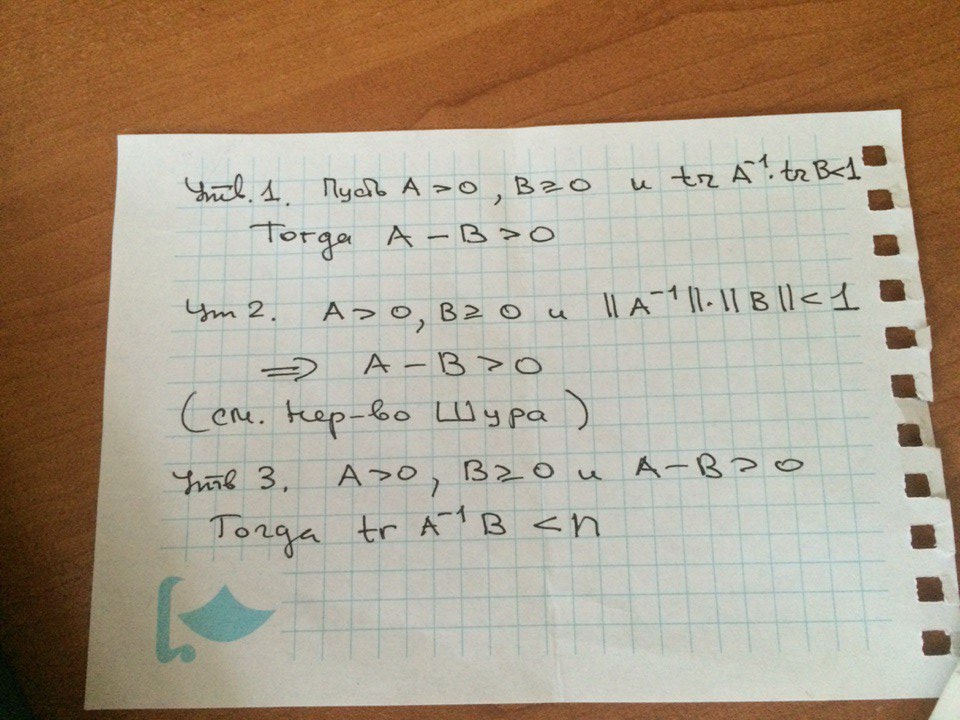 Утв. 1. Пусть A > 0, B ≥ 0 и tr A⁻¹·tr B<1
Тогда A − B > 0
Утв 2. A > 0, B ≥ 0 и ||A⁻¹||·||B|| < 1
⇒ A − B > 0
(см. нер-во Шура)
Утв 3. A>0, B≥0 и A−B > 0
Тогда tr A⁻¹ B < n